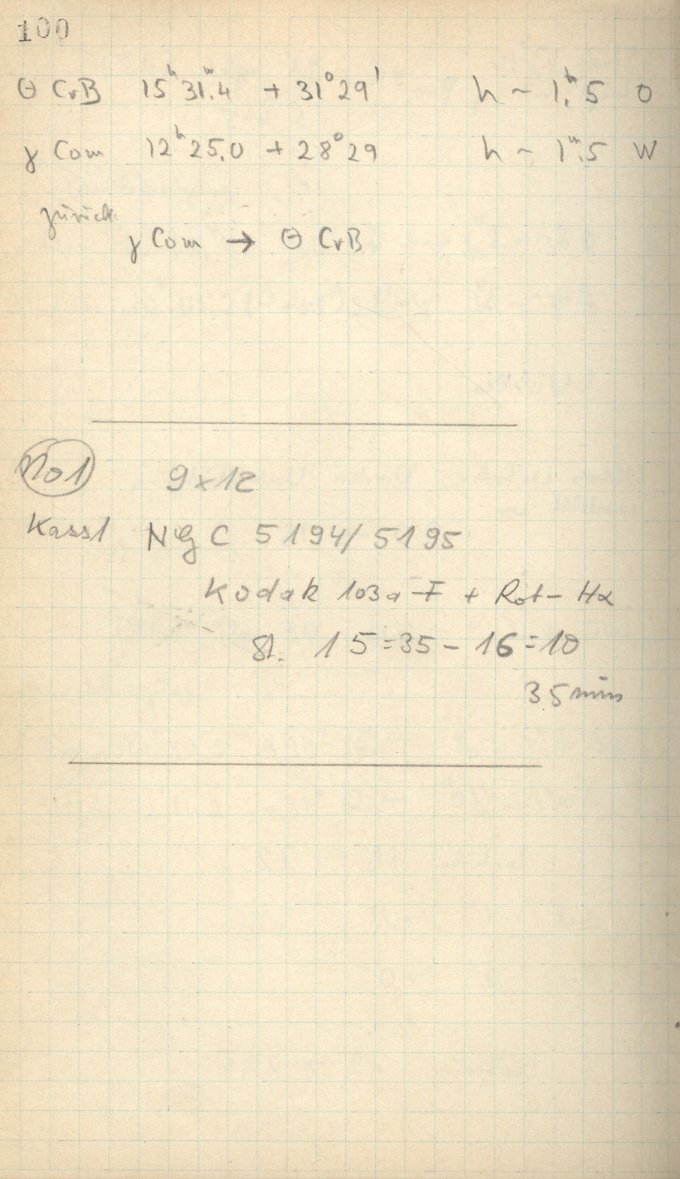 100
Θ CrB 15ʰ31ᵐ.4 + 31°29' h ~ 1ʰ.5 O
γ Com 12ʰ25.0 + 28°29 h ~ 1ʰ.5 W
zurück
γ Com → Θ CrB
No1 9x12
Kass1 NGC 5194/5195
Kodak 103a-F + Rot-Hα
St. 15=35 - 16=10
35 min